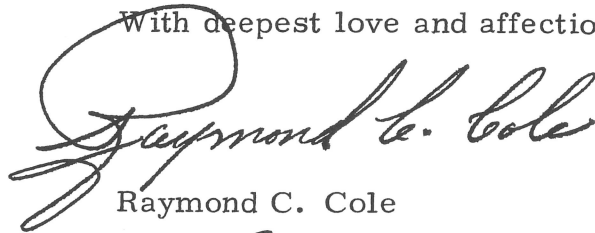 With deepest love and affectio
Raymond C. Cole
Raymond C. Cole